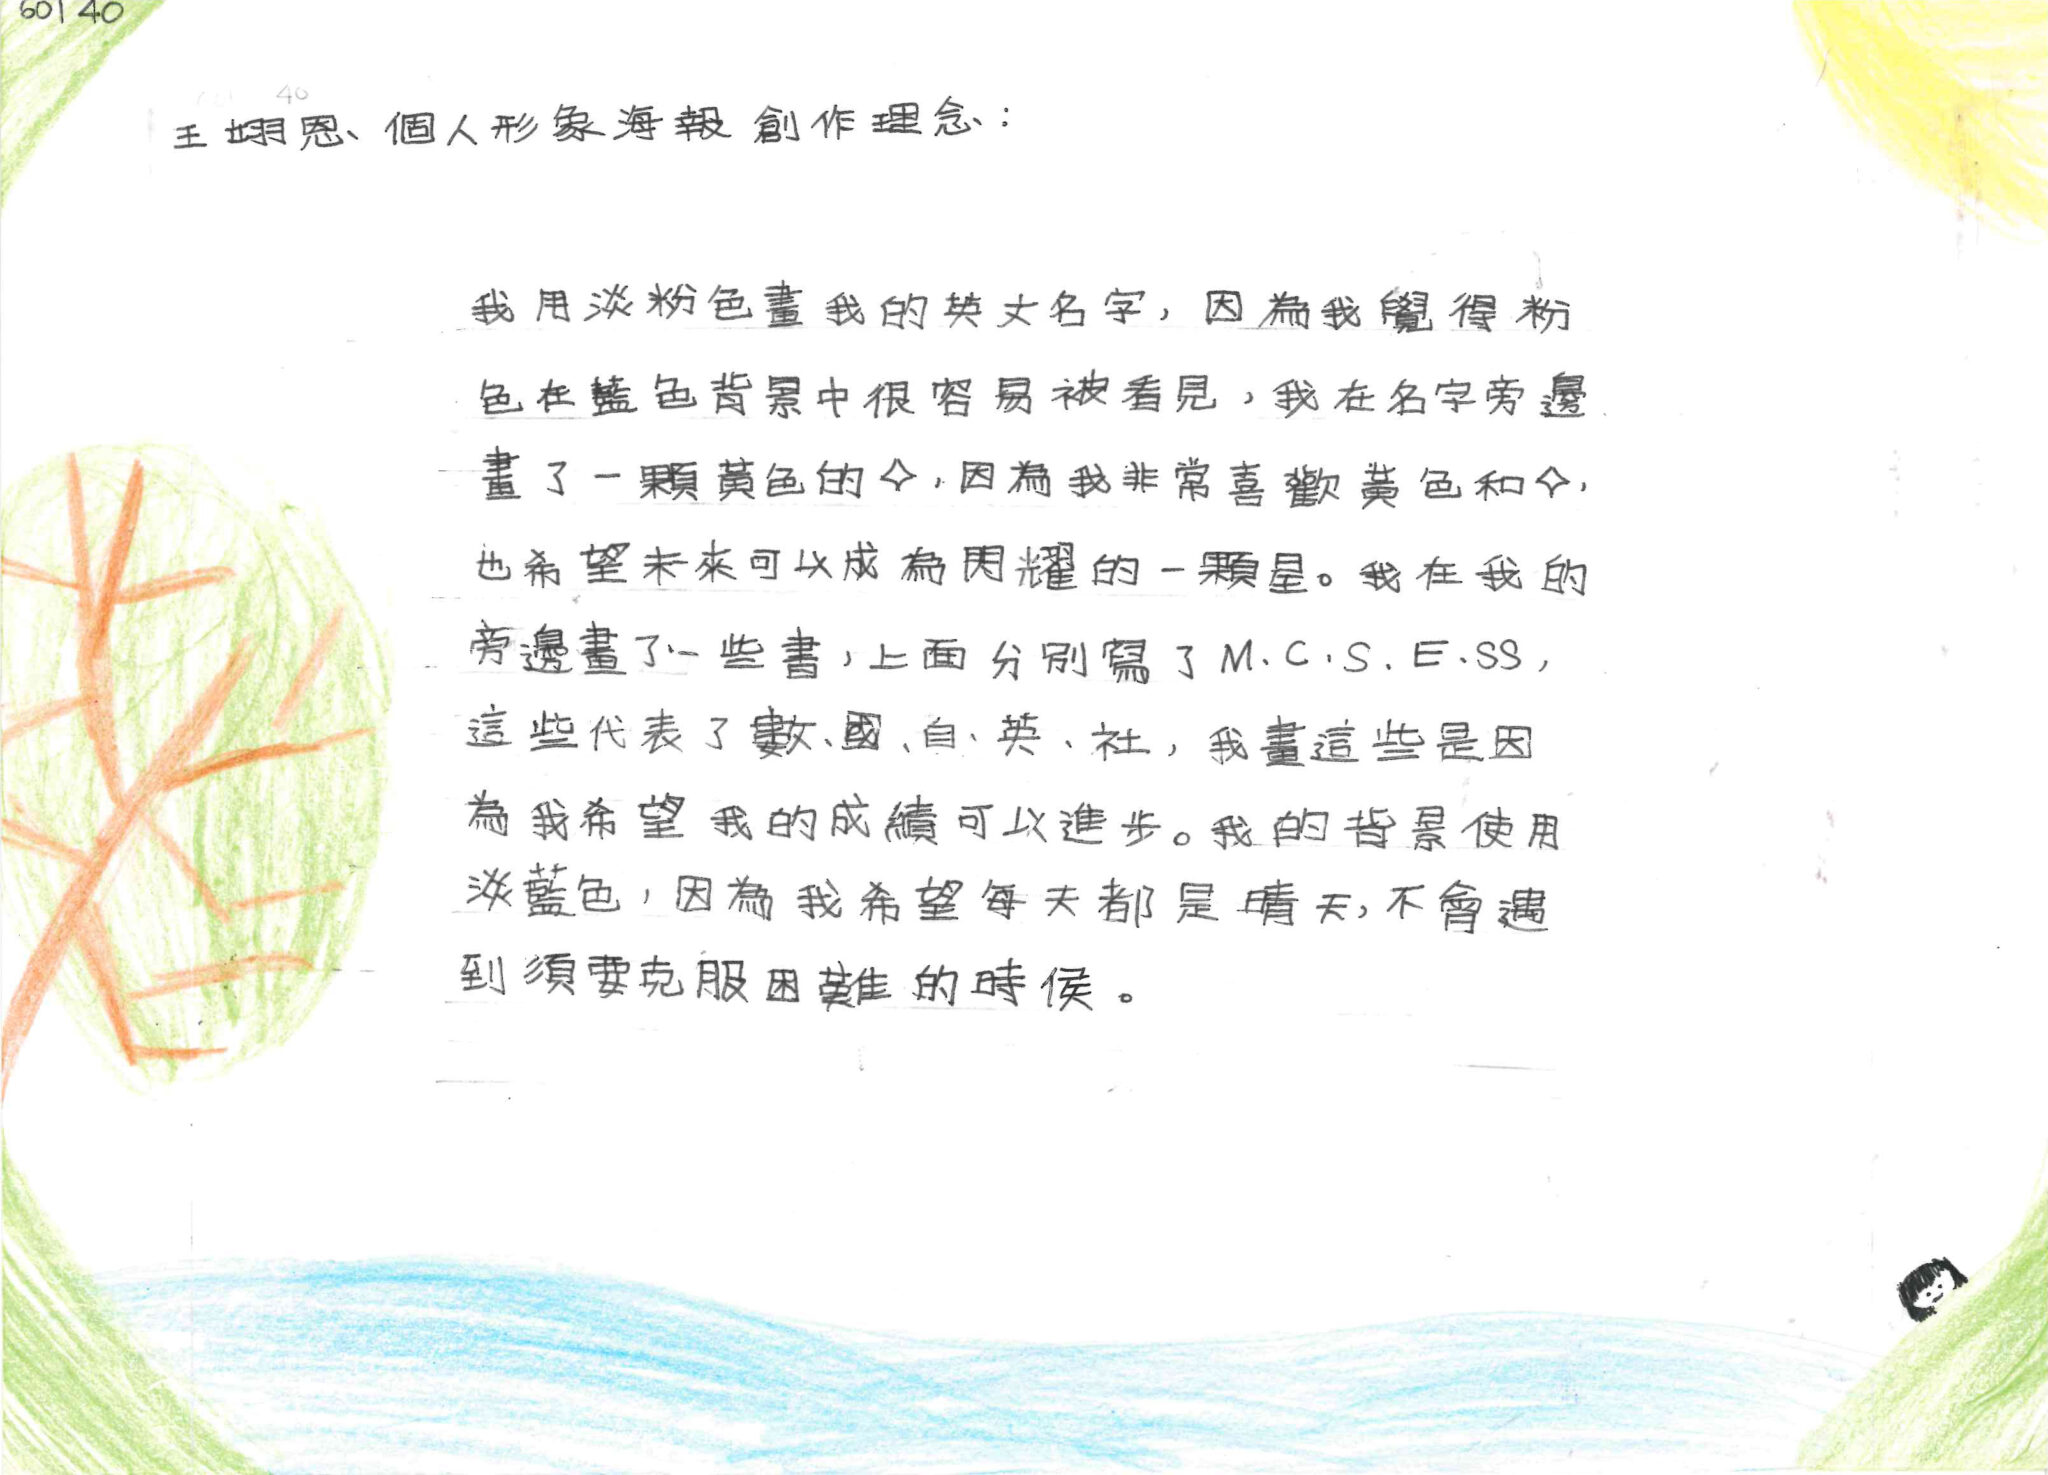 60140
40
王翊恩、個人形象海報創作理念：
我用淡粉色畫我的英文名字，因為我覺得粉
色在藍色背景中很容易被看見，我在名字旁邊
畫了一顆黃色的✧，因為我非常喜歡黃色和✧，
也希望未來可以成為閃耀的一顆星。我在我的
旁邊畫了一些書，上面分別寫了M.C.S.E.SS，
這些代表了數、國、自、英、社，我畫這些是因
為我希望我的成績可以進步。我的背景使用
淡藍色，因為我希望每天都是晴天，不會遇
到須要克服困難的時候。